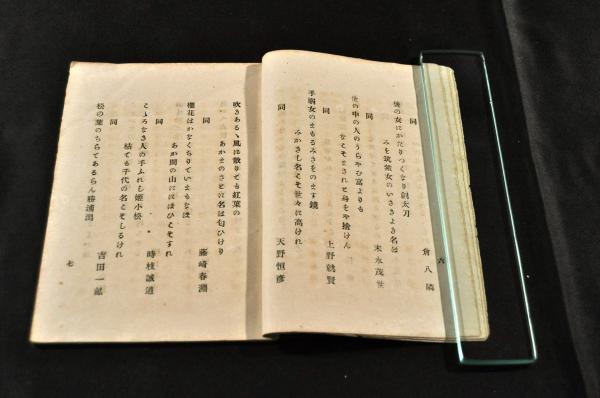 六
倉八隣
同
後の女にかたりつくなり剣太刀
みを筑紫女のいさきよき名は
末永茂世
同
世の中の人のうらやむ富よりも
なこそをまされと身をや捨けん
上野就賢
同
手弱女のまもるみさをのます鏡
みかきし名こそ世々に高けれ
天野恒彦
同
吹きあるゝ風に散りても紅葉の
あかまのさとに名は匂ひけり
藤崎春淵
同
櫻花はかなくちりていまもなほ
あか間の山ににほひこそすれ
時枝誠道
同
こゝろなき人の手ふれし姫小松
枯ても千代の名こそしるけれ
吉田一
松の葉のちらてあるらん勝浦潟
七